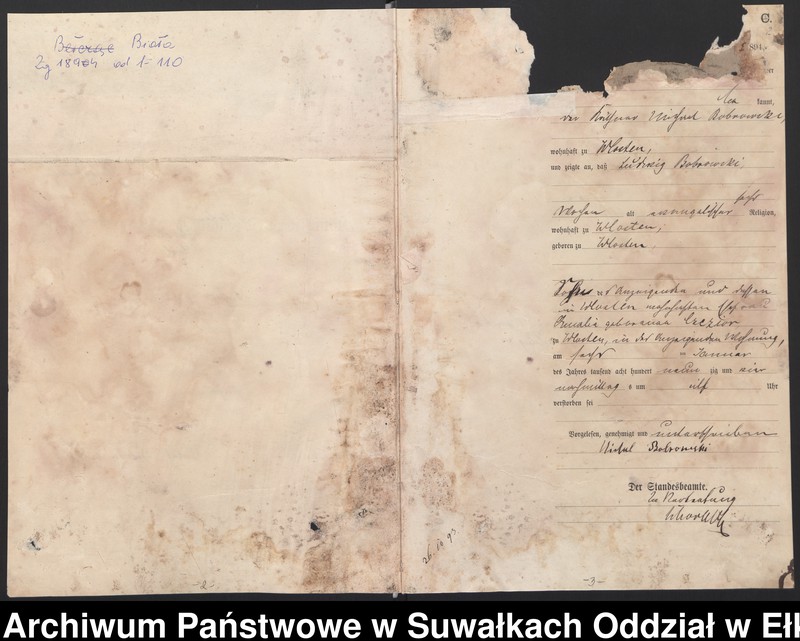 Biała
Zg 1894 od 1-110
-2-
26 14 93
C.
894.
kannt,
der Michael Bobrowski,
wohnhaft zu Wlosten,
und zeigte an, daß Ludwig Bobrowski,
sechs
Wochen alt evangelischer Religion,
wohnhaft zu Wlosten,
geboren zu Wlosten,
Sohn des Anzeigenden und dessen
in Wlosten wohnhaften Ehefrau
Amalie geborenen Czezior
zu Wlosten, in der Anzeigenden Wohnung,
am sechs Januar
des Jahres tausend acht hundert neun zig und vier
nachmittag s um elf Uhr
verstorben sei
Vorgelesen, genehmigt und unterschrieben
Michal Bobrowski
Der Standesbeamte.
In Vertretung
-3-
Archiwum Państwowe w Suwałkach Oddział w Eł